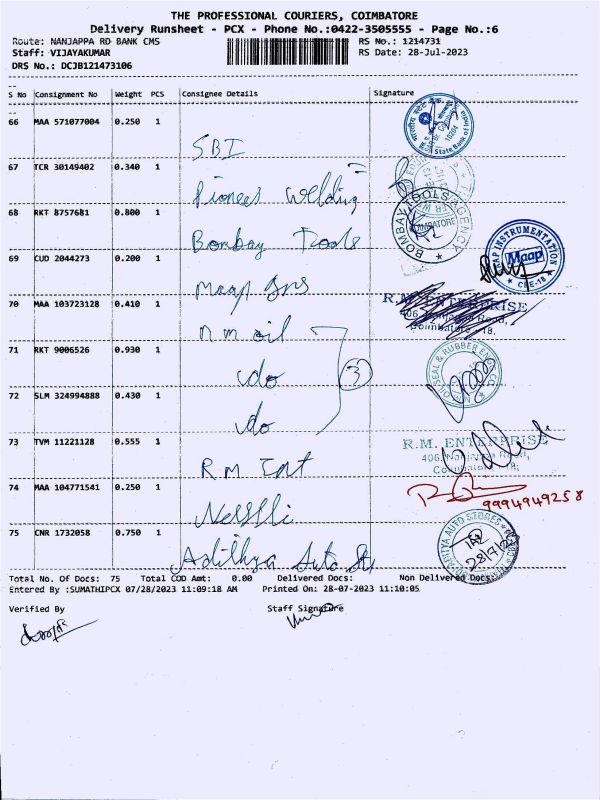 THE PROFESSIONAL COURIERS, COIMBATORE
Delivery Runsheet - PCX - Phone No.:0422-3505555 - Page No.:6
Route: NANJAPPA RD BANK CMS RS No.: 1214731
Staff: VIJAYAKUMAR RS Date: 28-Jul-2023
DRS No.: DCJB121473106
S No Consignment No Weight PCS Consignee Details Signature
66 MAA 571077004 0.250 1
SBI
67 TCR 30149402 0.340 1
Pioneer Welding
68 RKT 8757681 0.800 1
Bombay Tools
BOMBAY TOOLS AGENCY
COIMBATORE
69 CUD 2044273 0.200 1
Maap Ins
MAAP INSTRUMENTATION
Maap
CBE-18
70 MAA 103723128 0.410 1
R.M. ENTERPRISE
406,
Coimbatore - 18.
n m oil
71 RKT 9006526 0.930 1
do
3
OILSEAL & RUBBER
72 SLM 324994888 0.430 1
do
73 TVM 11221128 0.555 1
R.M. ENTERPRISE
406, Road,
Coimbatore - 18.
R m Ent
74 MAA 104771541 0.250 1
9994949258
75 CNR 1732058 0.750 1
Adithya Auto St
ADITHYA AUTO STORES
28/7/23
Total No. Of Docs: 75 Total COD Amt: 0.00 Delivered Docs: Non Delivered Docs:
Entered By :SUMATHIPCX 07/28/2023 11:09:18 AM Printed On: 28-07-2023 11:10:05
Verified By Staff Signature